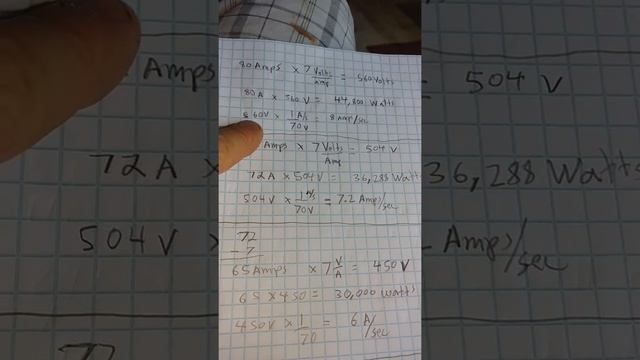 80 Amps × 7 Volts/Amp = 560 Volts
80A × 560V = 44,800 Watts
560V × 1 A/s / 70V = 8 Amp/sec
Amps × 7 Volts/Amp = 504 V
72A × 504V = 36,288 Watts
504V × 1 A/s / 70V = 7.2 Amp/sec
72
- 7
65 Amps × 7 V/A = 450V
65 × 450 = 30,000 watts
450V × 1/70 = 6 A/sec